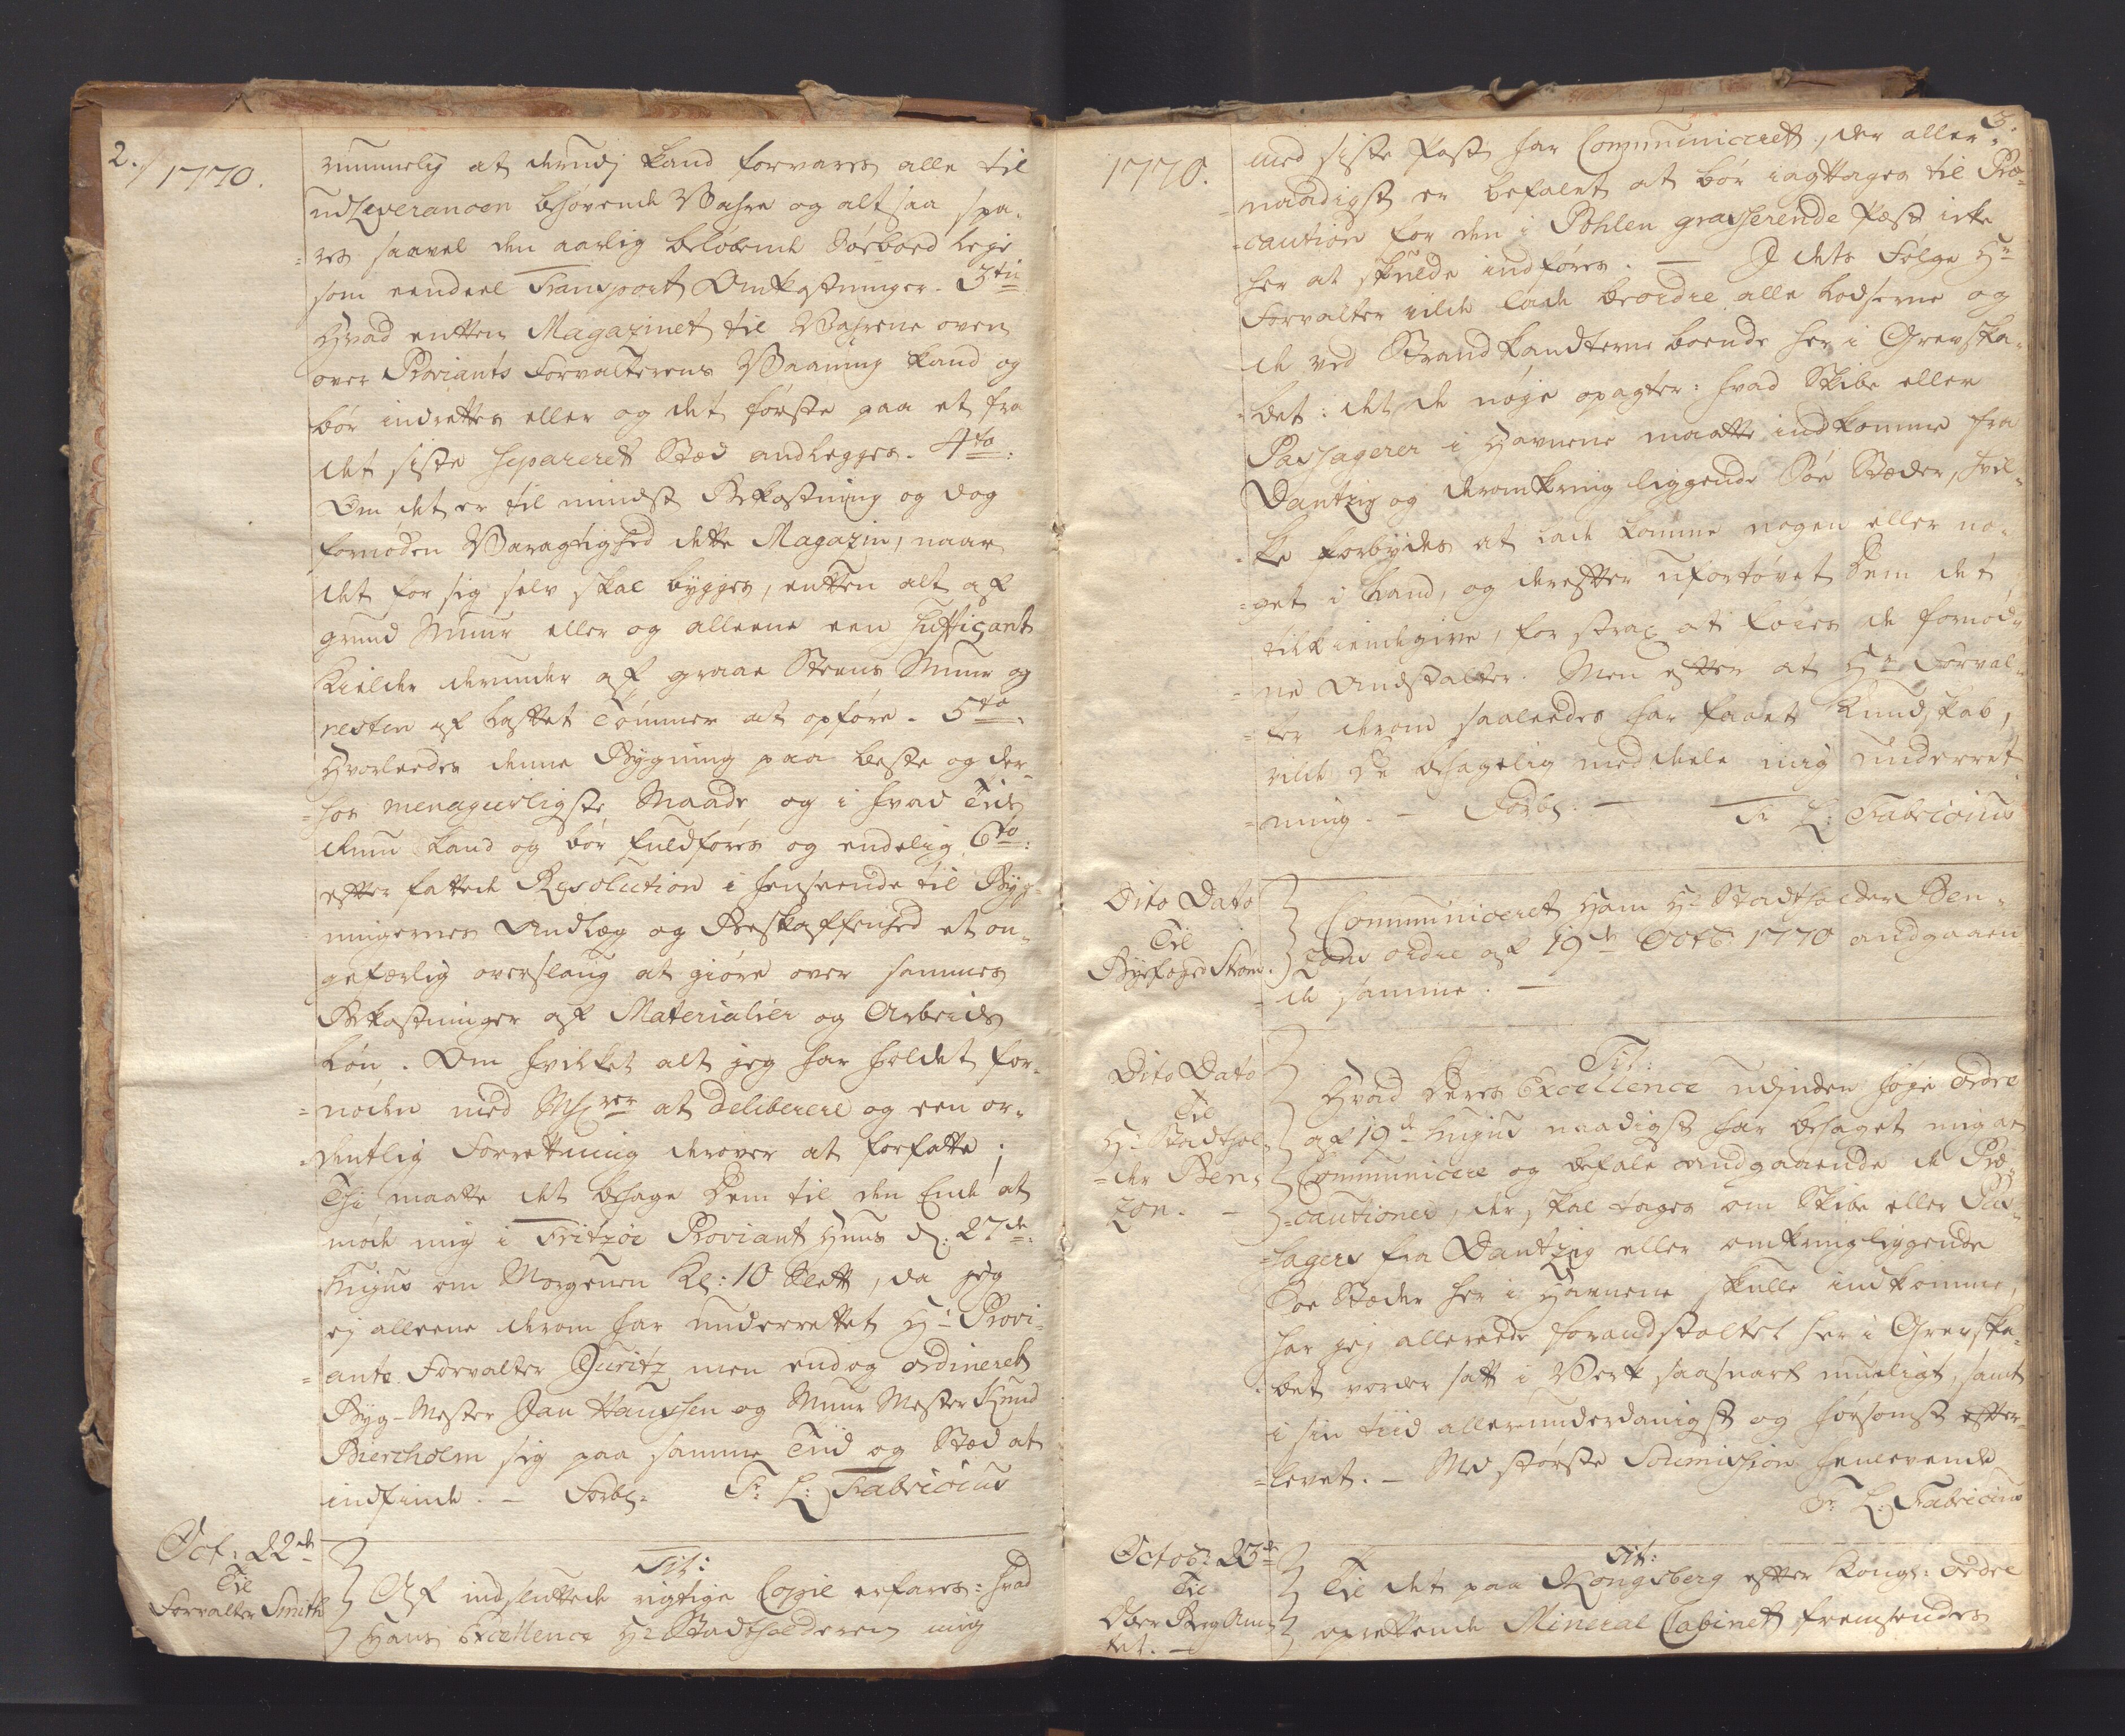 2.
1770.
rummelig at derudj kand forvares alle til
udleverancen behövende Vahre og altsaa spa-
=res saavel den aarlig belöbende Söeboed Leje
som eendeel Transport Omkostninger. 3tii
Hvad entten Magazinet til Vahrene oven
over Proviants Forvalterens Vaaning kand og
bör indrettes eller og det förste paa et fra
det siste separeret Stæd andlegges. 4to:
Om det er til mindst Bekostning og dog
fornöden Varagtighed dette Magazin, naar
det for sig selv skal bygges, entten alt af
grund Muur eller og alleene een suffisant
Kielder derunder af graae Steens Muur og
resten af haftet Tömmer at opföre. 5to:
Hvorleedes denne Bygning paa beste og der-
=hos menageerligste Maade og i hvad Tid
denne kand og bör fuldföres og endelig 6to:
efter fattede Resolution i henseende til Byg-
ningernes Andlæg og Beskaffenhed et on-
gefærlig overslaug at giöre over sammes
Bekostninger af Materialier og Arbeids
Lön. Om hvilket alt jeg har holdet for-
=nöden med Msrrer at deliberere og een or-
=dentlig Forrettning derover at forfatte;
Thi maatte det behage Dem til den Ende at
möde mig i Fritzöe Proviant Huus d: 27de
hujus om Morgenen Kl: 10 Slett, da jeg
ej alleene derom har underrettet Hr Provi-
=ants Forvalter Juritz men endog ordineret
Byg-Mester Jan Hanssen og Muur Mester Knud
Biercholm sig paa samme Tiid og Stæd at
indfinde. – Forbl: Fr: L: Fabricius
Oct: 22de
Til
Forvalter Smith
Tit:
Af indsluttede rigtige Copie erfares: hvad
Hans Excellence Hr Stadtholderen mig
3.
1770.
med siste Post har Communiceret, der aller-
=naadigst er befalet at bör iagttages til Præ-
=caution for den i Pohlen grasserende Pest icke
her at skulde indföres. — I dets Fölge Hr
Forvalter vilde lade beordre alle Lodserne og
de ved Strandkandterne boende her i Grevska-
=bet: det de nöje opagter: hvad Skibe eller
Passagerer i Havnene maatte indkomme fra
Dantzig og deromkring liggende Söe Stæder, hvil-
=ke forbydes at lade komme nogen eller no-
=get i Land, og derefter ufortövet Dem det
tilkiendegive, for strax at föies de fornöd-
=ne Andstalter. Men efter at Hr Forval-
=ter derom saaleedes har faaet Kundskab,
vilde De behagelig meddele mig underret-
=ning. – Forbl: — Fr L: Fabricius
Dito Dato
Til
Byefoged Ström.
Communiceret Ham Hr Stadtholder Ben-
zons ordre af 19de Octb: 1770 andgaaen
=de samme. —
Dito Dato
Til
Hr Stadthol-
=der Ben-
zon. –
Tit:
Hvad Deres Excellence udjnden höje ordre
af 19de hujus naadigst har behaget mig at
Communicere og befale andgaaende de Præ-
=cautioner, der skal tages om Skibe eller Pas-
=sagers fra Dantzig eller omkringliggende
Söe Stæder her i Havnene skulle indkomme,
har jeg allereede forandstaltet her i Grevska-
=bet vorder satt i Verk saasnart mueligt, samt
i sin tiid allerunderdanigst og hörsomst efter-
=levet. – Med störste Soumission henlevende
Fr: L: Fabricius
Octob: 23de
Til
Ober Berg Am-
tet. –
Tit:
Til det paa Kongsberg efter Kongl: ordre
oprettende Mineral Cabinett fremsendes